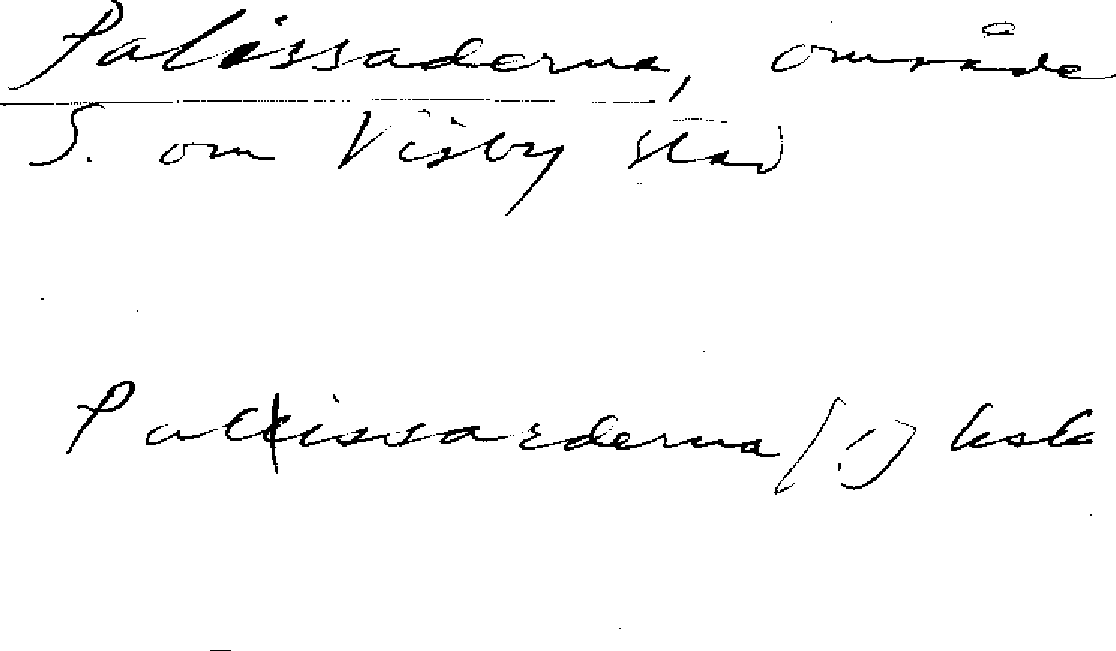 Palissaderna, område
S. om Visby stad
Palissarderna (!) hsk